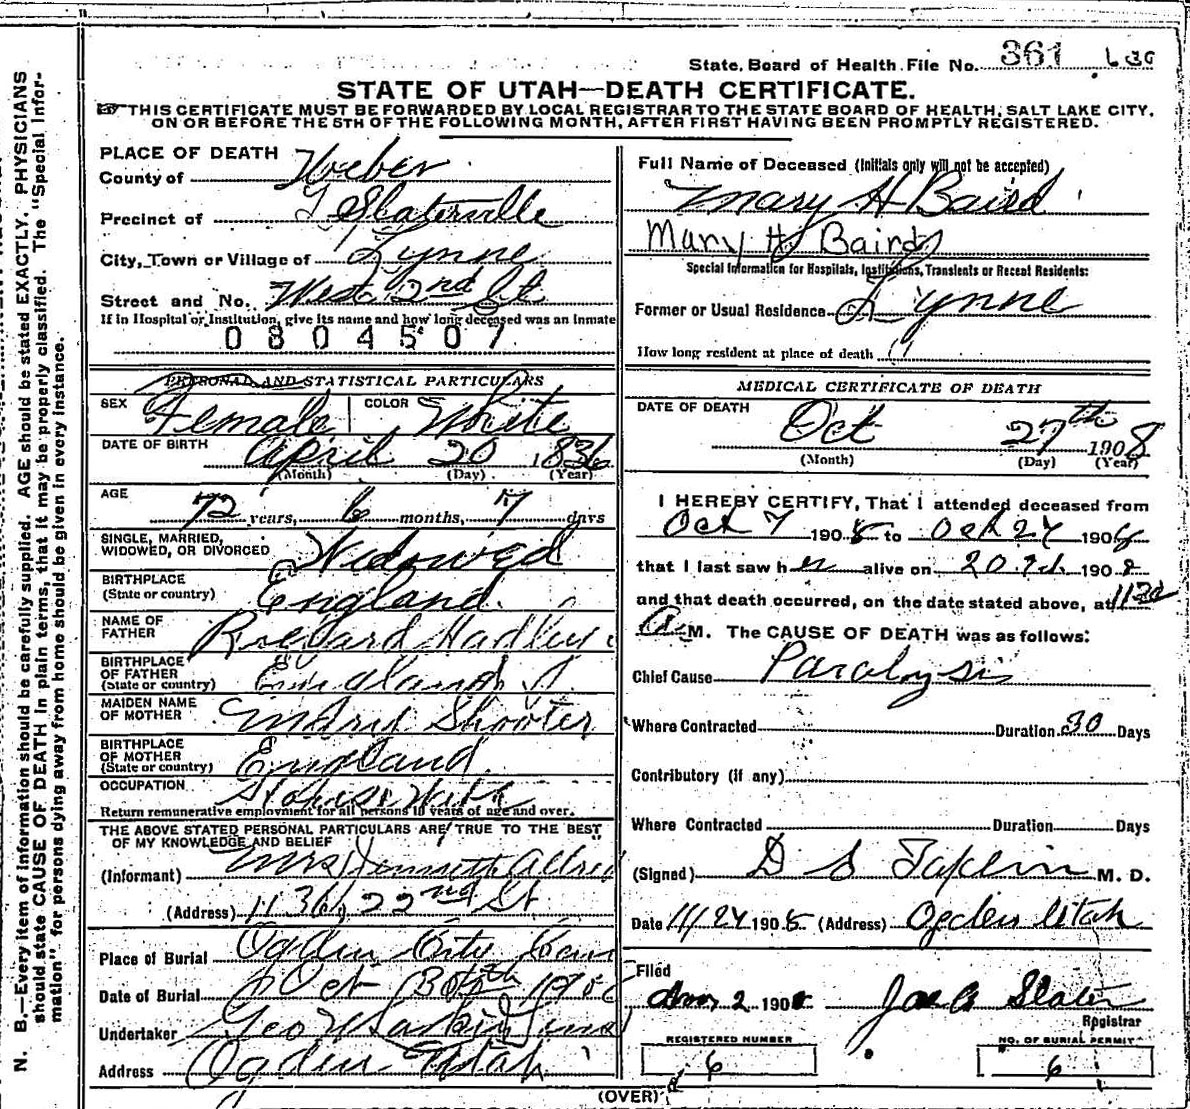 State Board of Health File No. 361
STATE OF UTAH—DEATH CERTIFICATE.
THIS CERTIFICATE MUST BE FORWARDED BY LOCAL REGISTRAR TO THE STATE BOARD OF HEALTH, SALT LAKE CITY,
ON OR BEFORE THE 5TH OF THE FOLLOWING MONTH, AFTER FIRST HAVING BEEN PROMPTLY REGISTERED.
N. B.—Every item of information should be carefully supplied. AGE should be stated EXACTLY. PHYSICIANS
should state CAUSE OF DEATH in plain terms, that it may be properly classified. The "Special Infor-
mation" for persons dying away from home should be given in every instance.
PLACE OF DEATH
County of Weber
Precinct of Slaterville
City, Town or Village of Lynne
Street and No. West 2nd St
If in Hospital or Institution, give its name and how long deceased was an inmate
0804507
PERSONAL AND STATISTICAL PARTICULARS
SEX Female COLOR White
DATE OF BIRTH April 20 1836
(Month) (Day) (Year)
AGE
72 years, 6 months, 7 days
SINGLE, MARRIED,
WIDOWED, OR DIVORCED Widowed
BIRTHPLACE
(State or country) England
NAME OF
FATHER Hadley
BIRTHPLACE
OF FATHER
(State or country) England
MAIDEN NAME
OF MOTHER Shooter
BIRTHPLACE
OF MOTHER
(State or country) England
OCCUPATION House Wife
Return remunerative employment for all persons 10 years of age and over.
THE ABOVE STATED PERSONAL PARTICULARS ARE TRUE TO THE BEST
OF MY KNOWLEDGE AND BELIEF
(Informant) Mrs
(Address) 22nd St
Place of Burial Ogden City Cem
Date of Burial Oct 30th
Undertaker Geo W Larkin
Address Ogden Utah
Full Name of Deceased (Initials only will not be accepted)
Mary H Baird
Mary H Baird
Special Information for Hospitals, Institutions, Transients or Recent Residents:
Former or Usual Residence Lynne
How long resident at place of death
MEDICAL CERTIFICATE OF DEATH
DATE OF DEATH Oct 27th 1908
(Month) (Day) (Year)
I HEREBY CERTIFY, That I attended deceased from
Oct 7 1908 to Oct 27 1908
that I last saw her alive on 1908
and that death occurred, on the date stated above, at 1130
A M. The CAUSE OF DEATH was as follows:
Chief Cause Paralysis
Where Contracted Duration 30 Days
Contributory (if any)
Where Contracted Duration Days
(Signed) D S M. D.
Date 1908 (Address) Ogden Utah
Filed
Nov 2 1908 Slater
Registrar
REGISTERED NUMBER
6
NO. OF BURIAL PERMIT
6
(OVER)